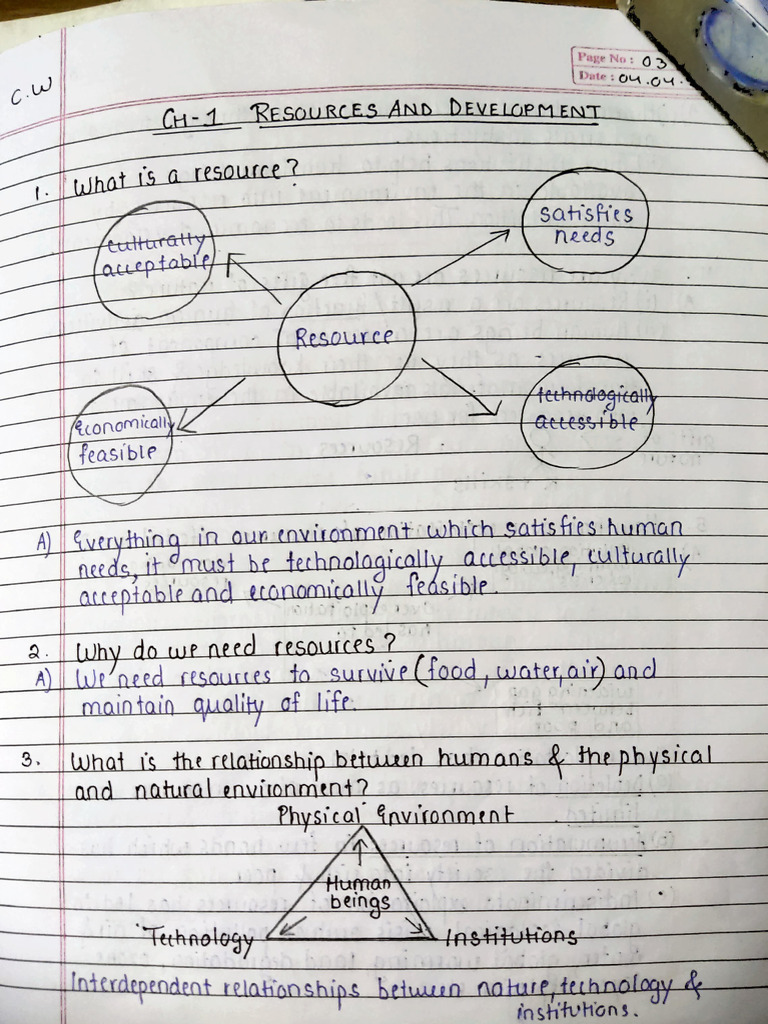 Page No: 03
Date: 04.04.
C.W
CH-1 RESOURCES AND DEVELOPMENT
1. What is a resource?
culturally
acceptable
satisfies
needs
Resource
economically
feasible
technologically
accessible
A) Everything in our environment which satisfies human
needs, it must be technologically accessible, culturally
acceptable and economically feasible.
2. Why do we need resources?
A) We need resources to survive (food, water, air) and
maintain quality of life.
3. What is the relationship between humans & the physical
and natural environment?
Physical Environment
Human
beings
Technology
Institutions
Interdependent relationships between nature, technology &
institutions.